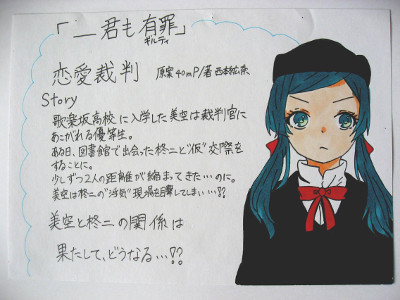 「―君も有罪」
ギルティ
恋愛裁判 原案40mP/著西本紘奈
Story
歌楽坂高校に入学した美空は裁判官に
あこがれる優等生。
ある日、図書館で出会った柊二と"仮"交際を
することに。
少しずつ2人の距離が縮まってきた…のに。
美空は柊二の"浮気"現場を目撃してしまい…!?
美空と柊二の関係は
果たして、どうなる…!?